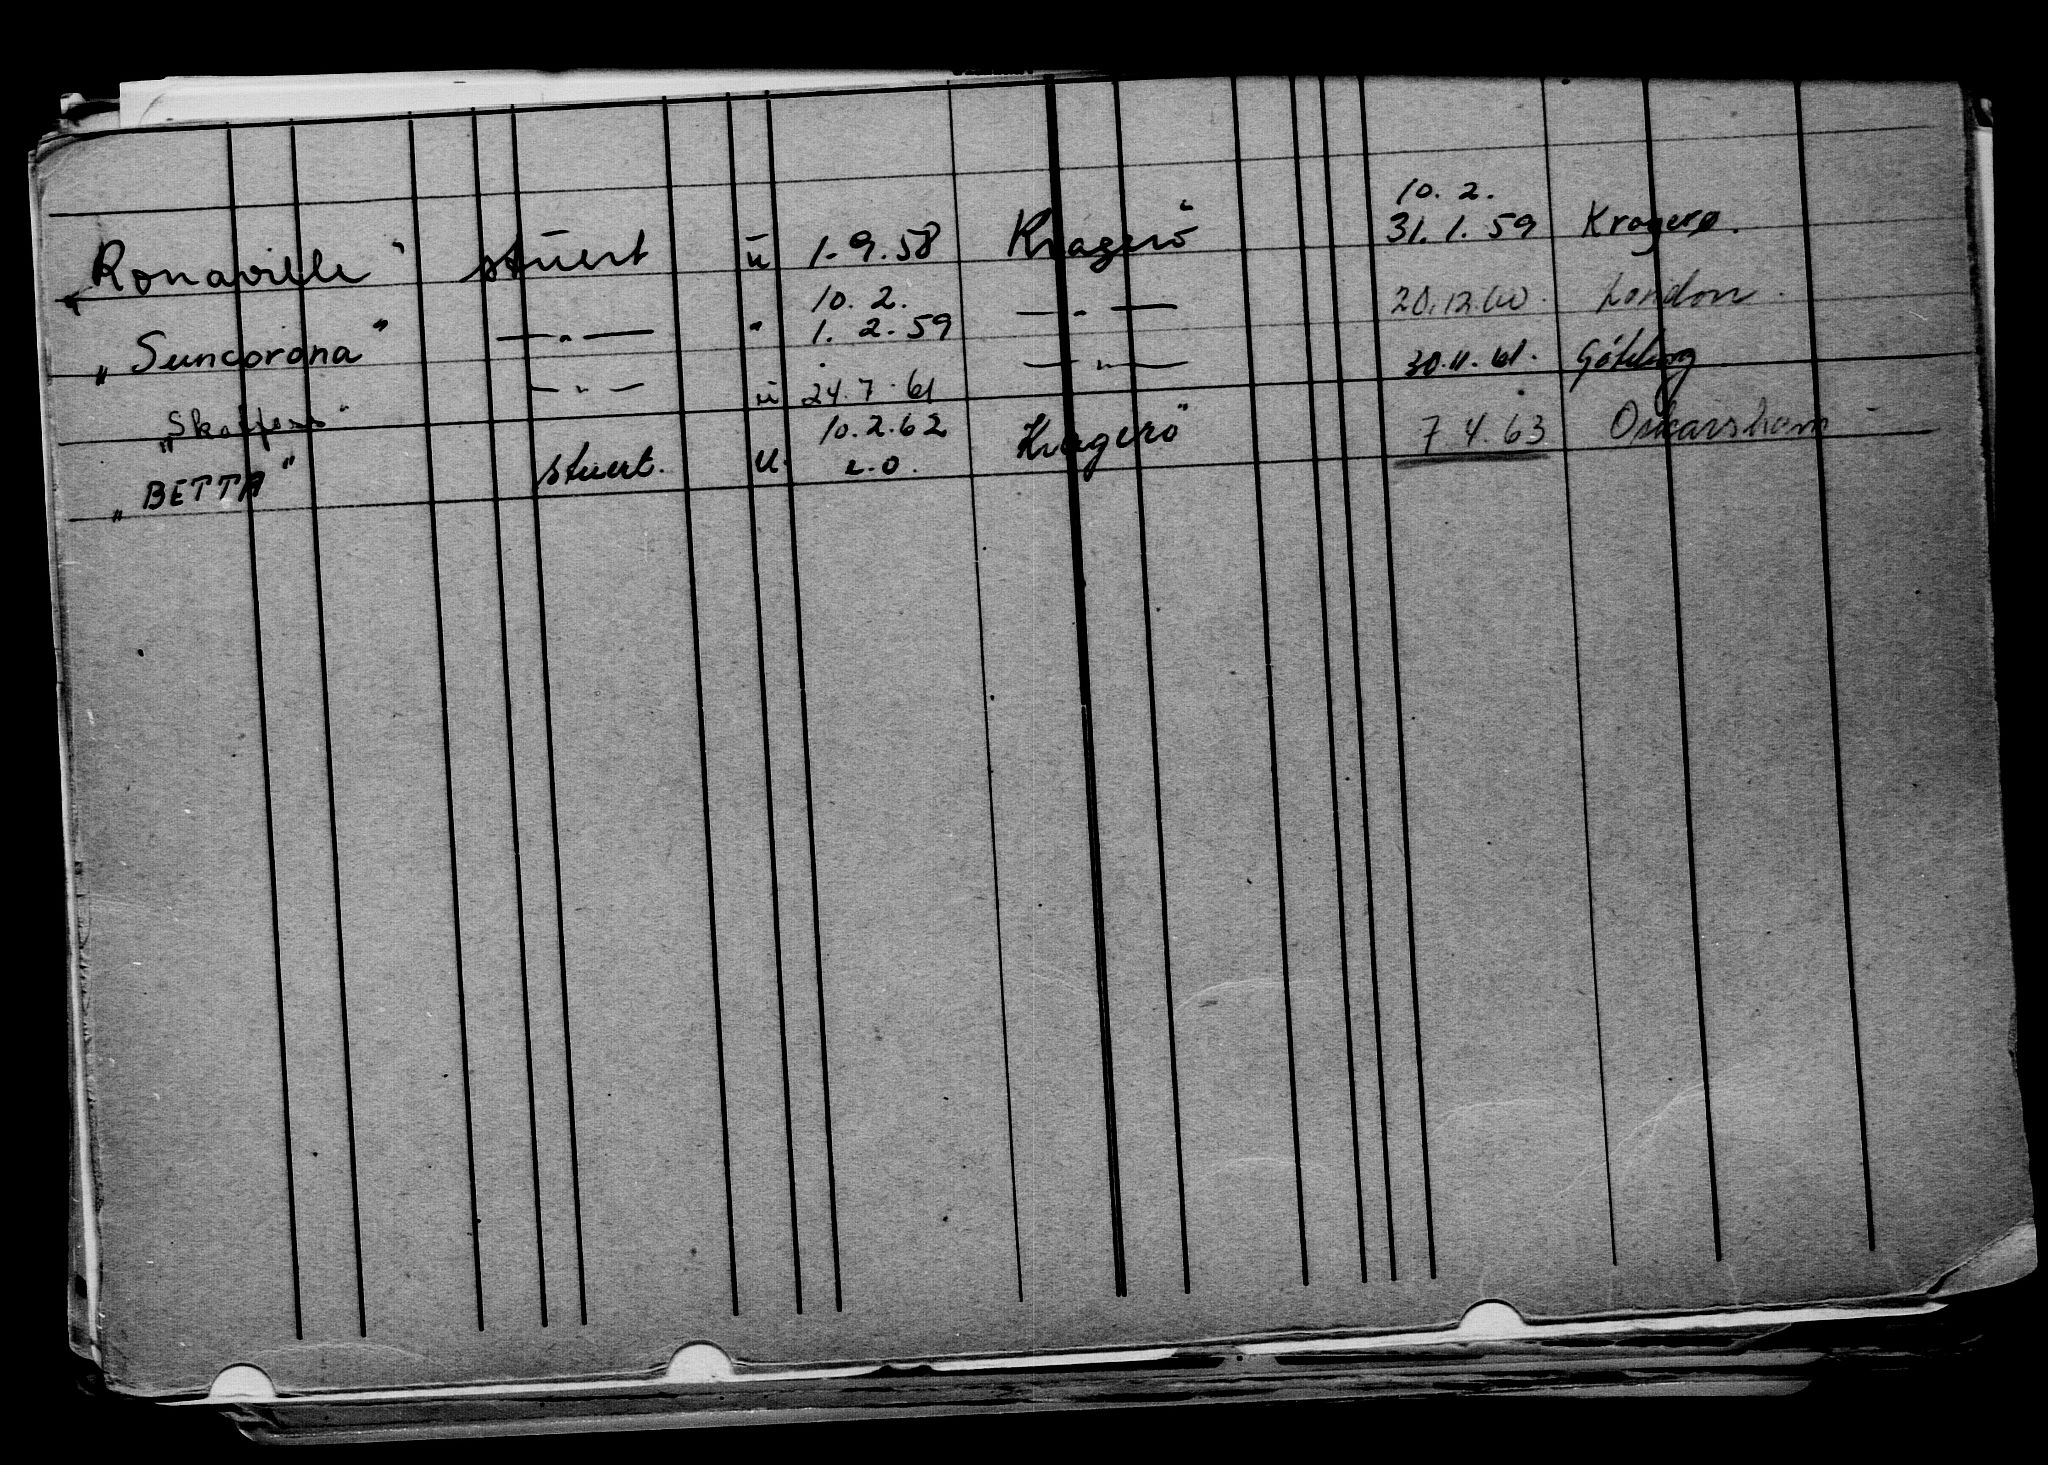 Ronaville " stuert ū 1.9.58 Kragerö 10.2. 31.1.59 Kragerø.
„ Suncorona " — " — " 10.2. 1.2.59 — " — 20.12.60. London.
„ " — " — ū 24.7.61 — " — 30.11.61. Göteborg
„ BETTA " stuert. u. 10.2.62 Kragerö 7.4.63 Oskarshamn